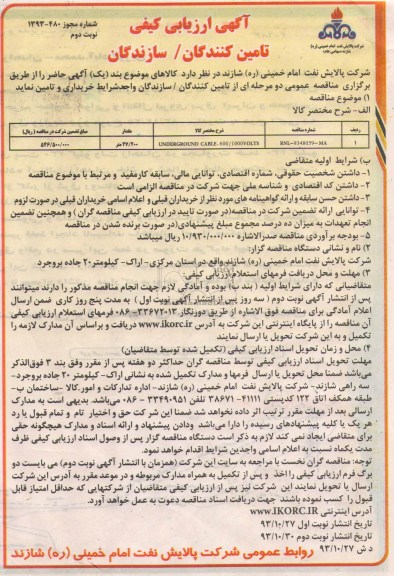 شماره مجوز ۴۸۰-۱۳۹۳
نوبت دوم
آگهی ارزیابی کیفی
تامین کنندگان/ سازندگان
شرکت پالایش نفت امام خمینی (ره) شازند
شرکت پالایش نفت امام خمینی (ره) شازند در نظر دارد کالاهای موضوع بند (یک) آگهی حاضر را از طریق
برگزاری مناقصه عمومی دو مرحله ای از تامین کنندگان / سازندگان واجدشرایط خریداری و تامین نماید
۱) موضوع مناقصه
الف- شرح مختصر کالا
ردیف شماره مناقصه شرح مختصر کالا مقدار مبلغ تضمین شرکت در مناقصه (ریال)
۱ RNL-9348039-MA UNDERGROUND CABLE-600/1000VOLTS ۳۶/۲۰۰ متر ۵۴۶/۵۰۰/۰۰۰
ب) شرایط اولیه متقاضی
۱- داشتن شخصیت حقوقی، شماره اقتصادی، توانایی مالی، سابقه کارمفید و مرتبط با موضوع مناقصه
۲- داشتن کد اقتصادی و شناسه ملی جهت شرکت در مناقصه الزامی است
۳- داشتن حسن سابقه و ارائه گواهینامه های مورد نظر از خریداران قبلی و اعلام اسامی خریداران قبلی در صورت لزوم
۴- توانایی ارائه تضمین شرکت در مناقصه(در صورت تایید در ارزیابی کیفی مناقصه گران ) و همچنین تضمین
انجام تعهدات به میزان ده درصد مجموع مبلغ پیشنهادی(در صورت برنده شدن در مناقصه
۵- بودجه برآوردی مناقصه صدرالاشاره ۱۰/۹۳۰/۰۰۰/۰۰۰ ریال میباشد
۲) نام و نشانی دستگاه مناقصه گزار:
شرکت پالایش نفت امام خمینی (ره) شازند واقع در استان مرکزی- اراک- کیلومتر۲۰ جاده بروجرد
۳) مهلت و محل دریافت فرمهای استعلام ارزیابی کیفی:
متقاضیانی که دارای شرایط اولیه ( بند ب) بوده و آمادگی لازم جهت انجام مناقصه مذکور را دارند میتوانند
پس از انتشار آگهی نوبت دوم ( سه روز پس از انتشار آگهی نوبت اول ) به مدت پنج روز کاری ضمن ارسال
اعلام آمادگی برای مناقصه فوق الاشاره از طریق دورنگار ۳۳۶۷۲۰۱۳-۰۸۶ فرمهای استعلام ارزیابی کیفی
آن مناقصه را از پایگاه اینترنتی این شرکت به آدرس www.ikorc.ir دریافت و براساس آن مدارک لازمه را
تکمیل و به این شرکت تحویل یا ارسال نمایند
۴) محل و زمان تحویل اسناد ارزیابی کیفی (تکمیل شده توسط متقاضیان)
مهلت تحویل اسناد ارزیابی کیفی توسط مناقصه گران حداکثر دو هفته پس از مقرر وفق بند ۳ فوق الذکر
می‌باشد ضمنا محل تحویل یا ارسال فرمها و مدارک تکمیل شده به نشانی اراک- کیلومتر ۲۰ جاده بروجرد-
سه راهی شازند- شرکت پالایش نفت امام خمینی (ره) شازند- اداره تدارکات و امورکالا -ساختمان ب-
طبقه همکف اتاق ۱۲۲ کدپستی ۴۱۱۱۱-۳۸۶۷۱ تلفن ۳۳۴۹۰۹۵۱ - ۰۸۶ می‌باشد. بدیهی است به مدارک
ارسالی بعد از مهلت مقرر ترتیب اثر داده نخواهد شد ضمنا این شرکت حق و اختیار تام و تمام قبول یا رد
هر یک یا کلیه پیشنهادهای رسیده را دارا می‌باشد ودادن پیشنهاد و ارائه اسناد و مدارک هیچگونه حقی
برای متقاضی ایجاد نمی کند لازم به ذکر است دستگاه مناقصه گزار پس از وصول اسناد ارزیابی کیفی ظرف
مدت یکماه نسبت به اعلام اسامی واجدین شرایط اقدام خواهد نمود.
توجه: مناقصه گران نخست با مراجعه به سایت این شرکت (همزمان با انتشار آگهی نوبت دوم) می بایست دو
برگ فرم ارزیابی کیفی را اخذ و پس از تکمیل به همراه مدارک مربوطه و در موعد مقرر به آدرس این شرکت
ارسال یا تحویل نمایند این شرکت نیز پس از ارزیابی کیفی متقاضیان از شرکتهایی که حداقل امتیاز قابل
قبول را کسب نموده باشند جهت دریافت اسناد مناقصه دعوت به عمل خواهد آورد.
آدرس اینترنتی WWW.IKORC.IR
تاریخ انتشار نوبت اول ۹۳/۱۰/۲۷
تاریخ انتشار نوبت دوم ۹۳/۱۰/۳۰
د ش ۹۳/۱۰/۲۷ روابط عمومی شرکت پالایش نفت امام خمینی (ره) شازند